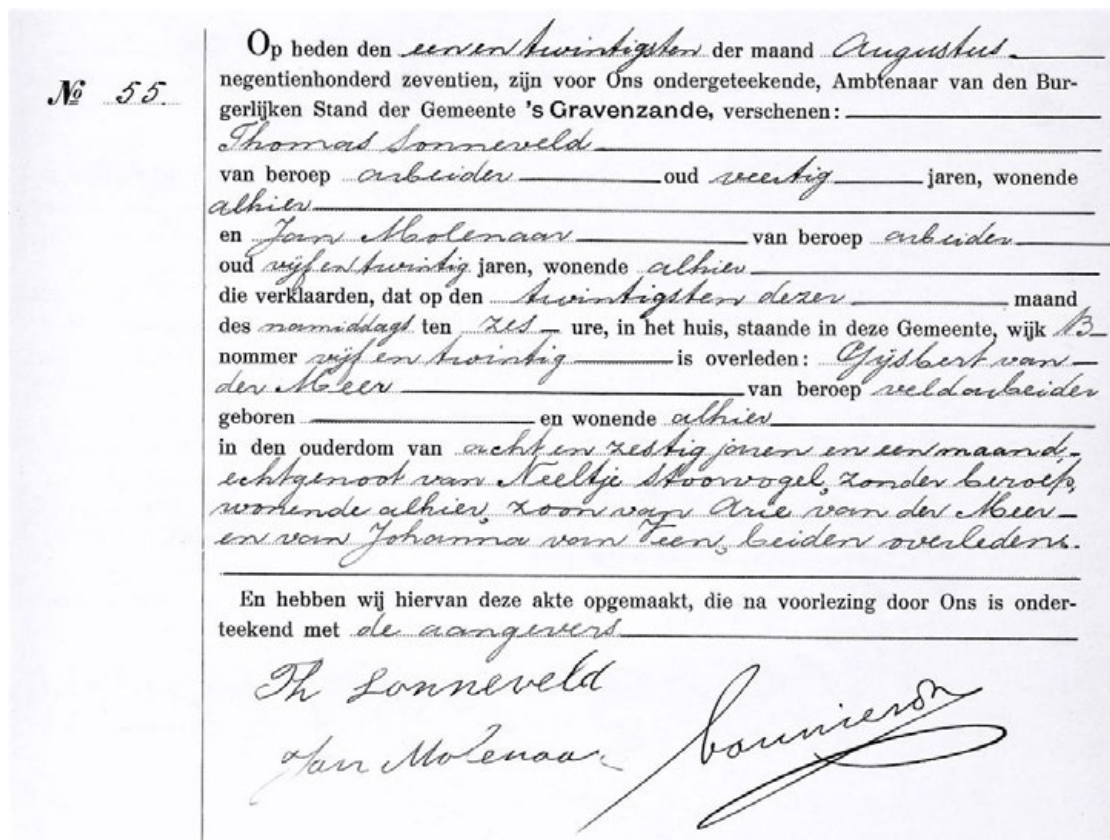 Op heden den een en twintigsten der maand Augustus
negentienhonderd zeventien, zijn voor Ons ondergeteekende, Ambtenaar van den Bur-
№ 55.
gerlijken Stand der Gemeente 's Gravenzande, verschenen:
Thomas Sonneveld
van beroep arbeider oud veertig jaren, wonende
alhier
en Jan Molenaar van beroep arbeider
oud vijf en twintig jaren, wonende alhier
die verklaarden, dat op den twintigsten dezer maand
des namiddags ten zes ure, in het huis, staande in deze Gemeente, wijk B
nommer vijf en twintig is overleden: Gijsbert van
der Meer van beroep veldarbeider
geboren en wonende alhier
in den ouderdom van acht en zestig jaren en een maand,
echtgenoot van Neeltje Stoorvogel, zonder beroep,
wonende alhier, zoon van Arie van der Meer
en van Johanna van Veen, beiden overleden.
En hebben wij hiervan deze akte opgemaakt, die na voorlezing door Ons is onder-
teekend met de aangevers
Th Sonneveld
Jan Molenaar